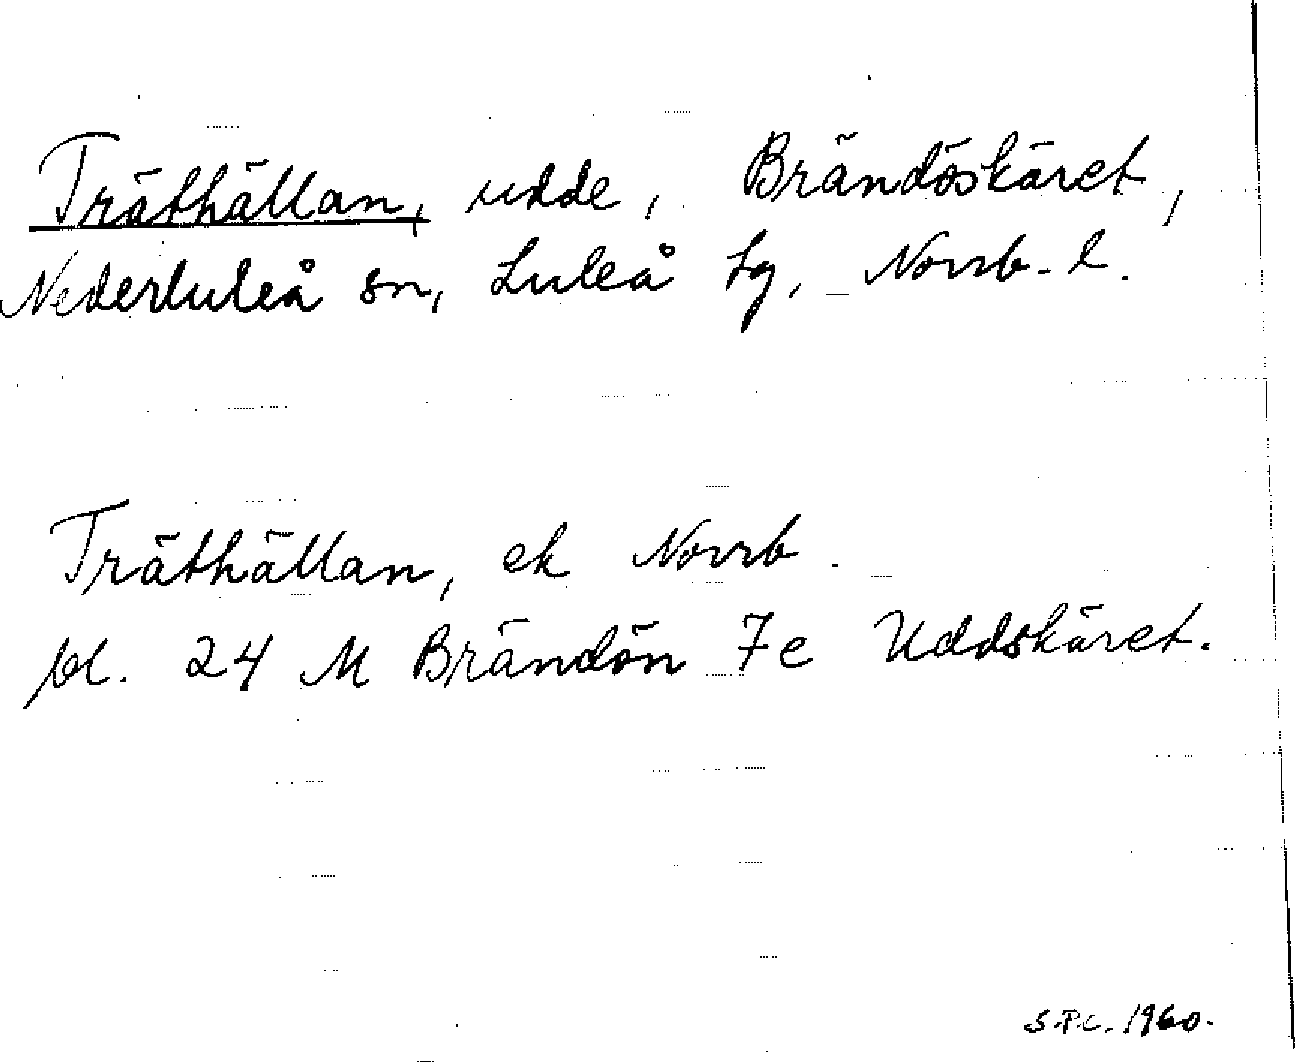 Träthällan, udde, Brändöskäret,
Nederluleå sn, Luleå tg, Norrb. l.
Träthällan, ek Norrb.
bl. 24 M Brändön 7e Uddskäret.
S.P.C. 1960.